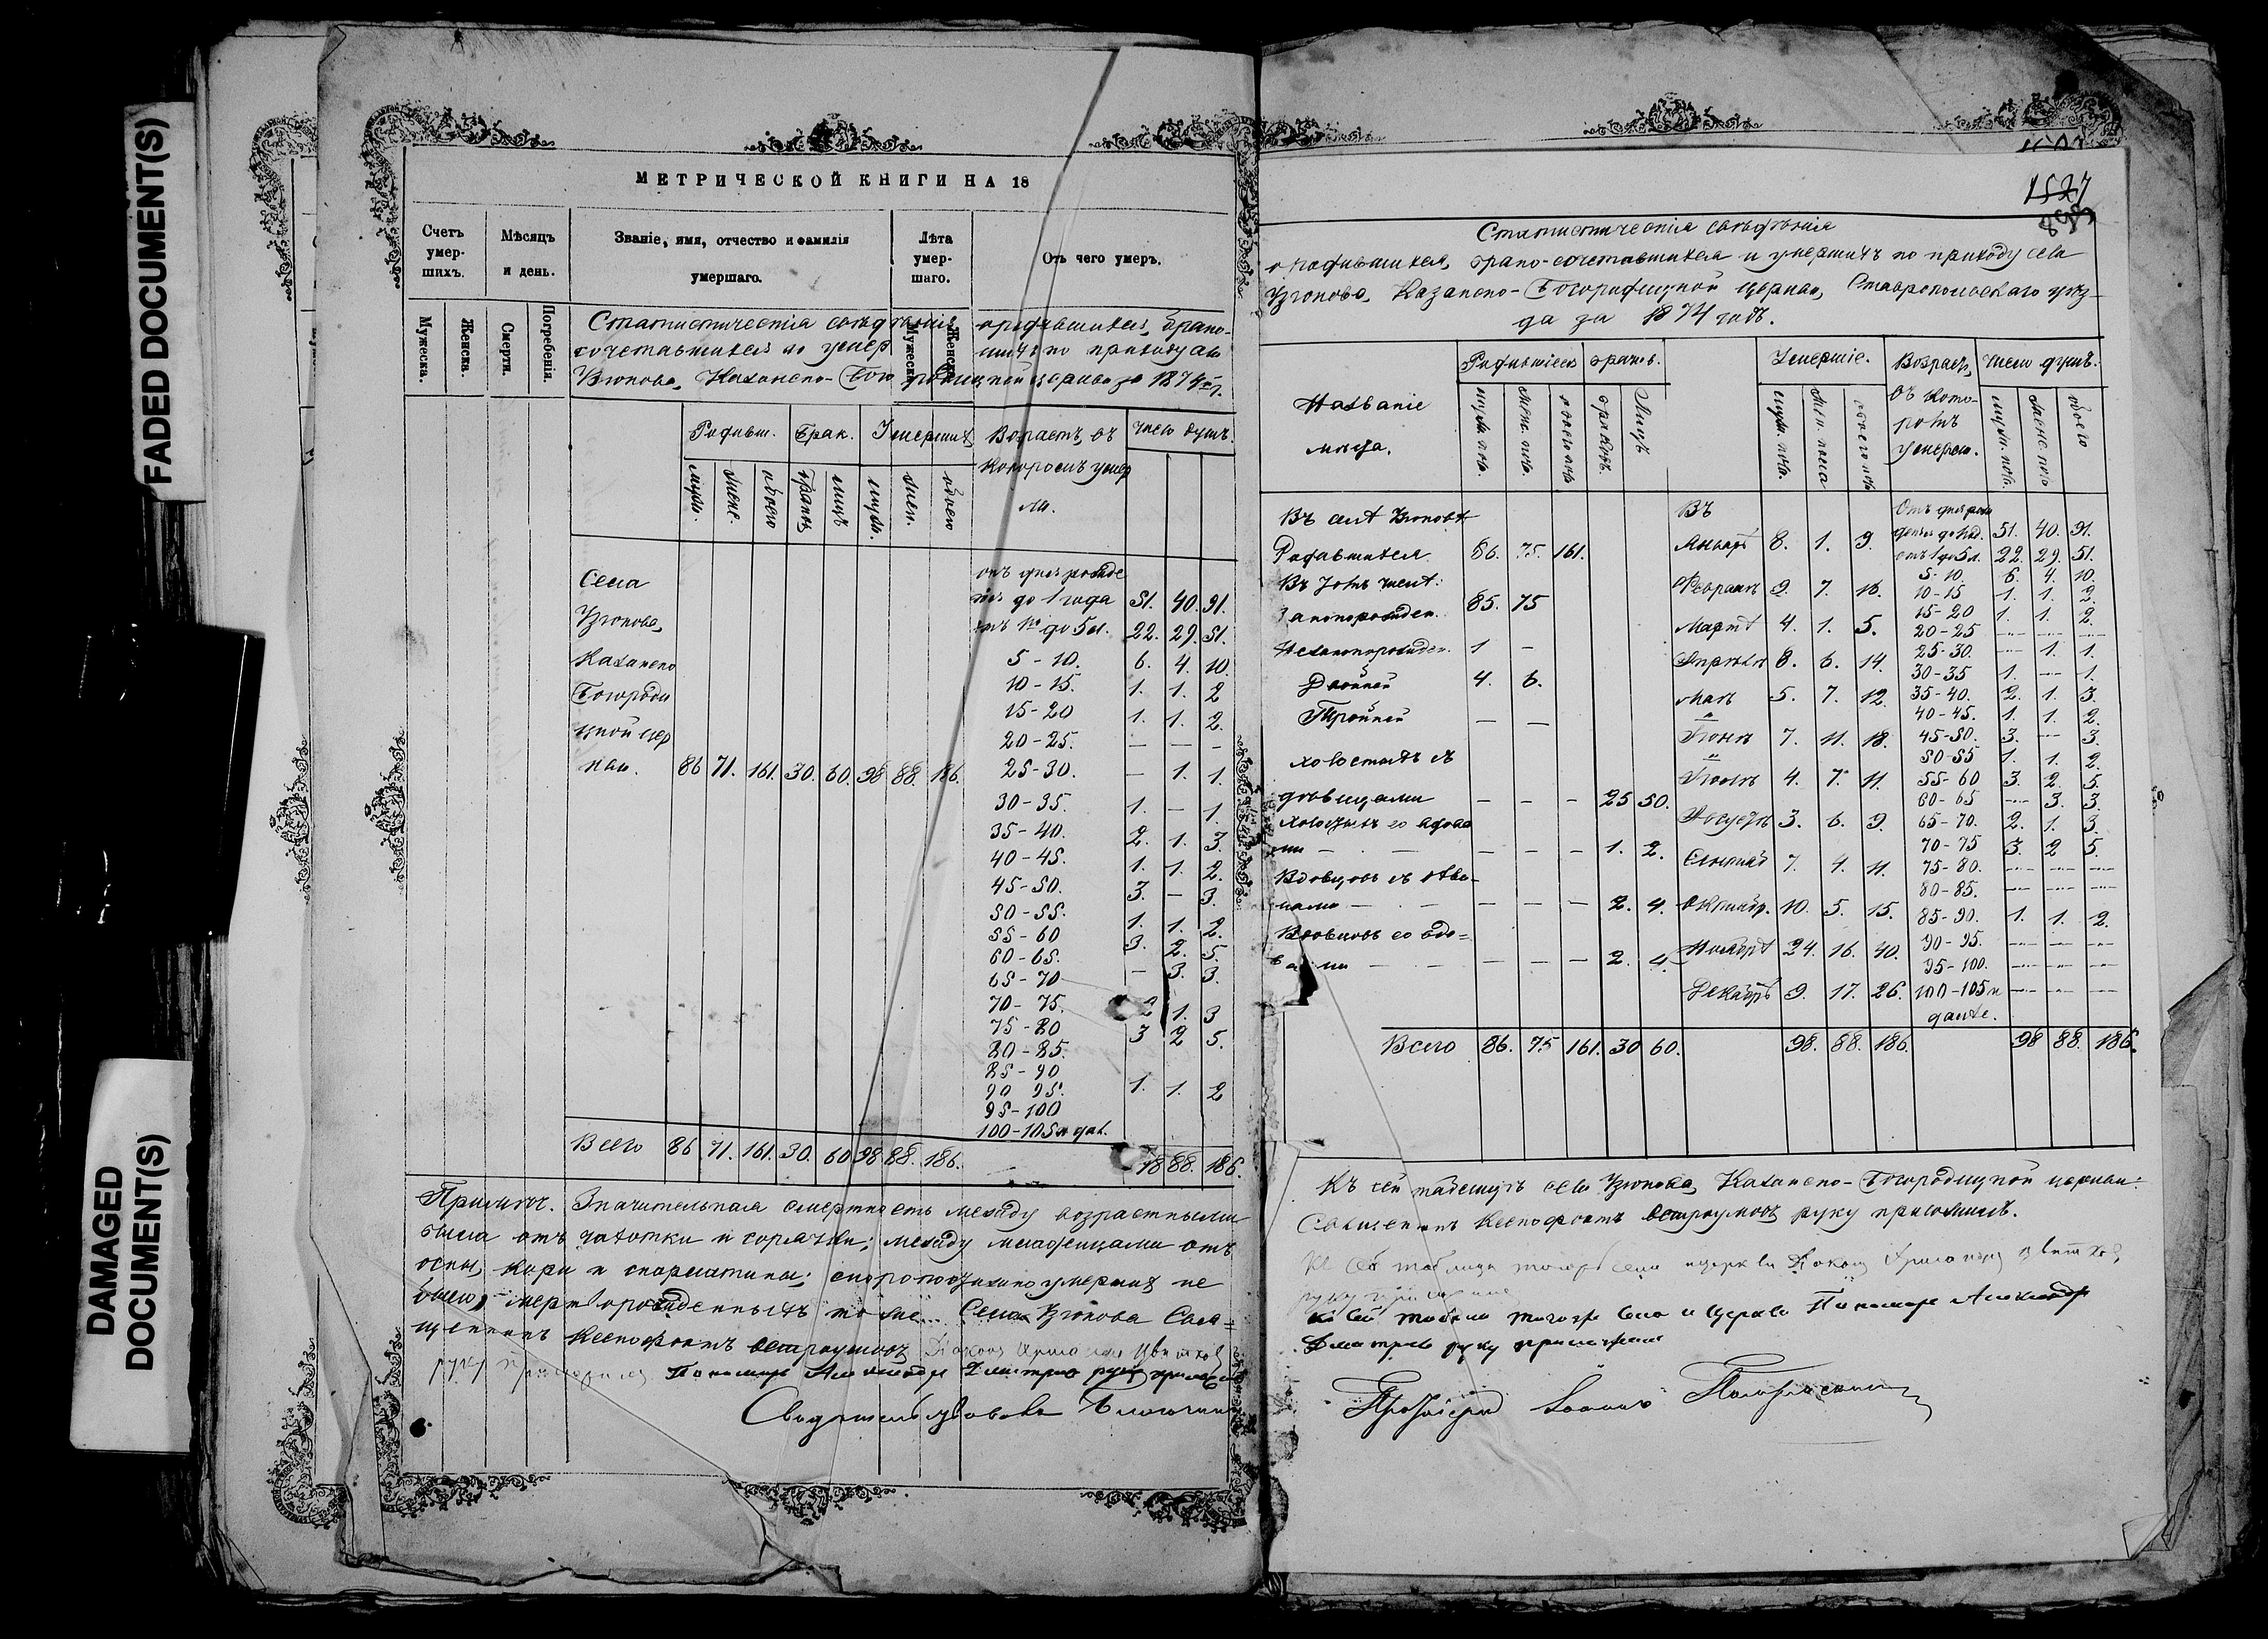 FADED DOCUMENT(S)
DAMAGED
DOCUMENT(S)
МЕТРИЧЕСКОЙ КНИГИ НА 18
Счетъ умер- шихъ.
Мѣсяцъ и день.
Званіе, имя, отчество и фамилія умершаго.
Лѣта умер- шаго.
Отъ чего умеръ.
Мужеска.
Женска.
Смерти.
Погребенія.
Мужеска.
Женска.
Статистическія свѣдѣнія о родившихся, брако-
сочетавшихся и умер шихъ по приходу села
Узюкова, Казанско-Бого родицкой церкви за 1874 г.
Родивш. Брак. Умерших Возрастъ, въ число душъ.
которомъ умер
ли.
муж. женс. обоего браковъ лицъ муж. жен. обоего
отъ дня рожде
нія до 1 года 51. 40. 91.
отъ 1го до 5 л. 22. 29. 51.
5-10. 6. 4. 10.
10-15. 1. 1. 2
15-20 1. 1. 2.
20-25. — — -
25-30. — 1. 1.
30-35. 1. — 1.
35-40. 2. 1. 3.
40-45. 1. 1. 2.
45-50. 3. — 3.
50-55. 1. 1. 2.
55-60 3. 2. 5.
60-65. — 3. 3.
65-70
70-75. 2 1. 3
75-80 3 2 5.
80-85.
85-90
90 95. 1. 1. 2
95-100
100-105 и дал.
Села
Узюкова,
Казанско
Богороди
цкой цер
кви. 86 71. 161. 30. 60. 98 88. 186.
Всего 86 71. 161. 30. 60 98 88. 186. 98 88. 186.
Примѣч. Значительная смертность между возрастными
была отъ чахотки и горячки; между младенцами отъ
оспы, кори и скарлатины; скоропостижно умерших не
было, мертворожденныхъ тоже... Села Узюкова Свя=
щенникъ Ксенофонтъ Остроумовъ Діаконъ Цвѣтковъ
руку приложилъ Пономарь Александръ Дмитріев руку приложил
Свидѣтельствовалъ Благочин
1527
Статистическія свѣдѣнія
о родившихся, брако-сочетавшихся и умершихъ по приходу села
Узюкова, Казанско-Богородицкой церкви, Ставропольскаго уѣз-
да за 1874 годъ.
Названіе
мѣста.
Родившіеся браковъ. Умершіе. Возрастъ, число душъ.
въ кото-
ромъ
умерли.
муж. пола. жен. пола. обоего пола браковъ. Лицъ муж. пола. жен. пола обоего пола муж. пола. женс. пола обоего
Въ селѣ Узюковѣ
Родившихся 86. 75. 161.
Въ томъ числѣ:
Законорожден. 85. 75
Незаконорожден. 1 —
Двойней 4. 6.
Тройней — —
холостыхъ съ
дѣвицами — — — 25 50.
холостыхъ со вдова
ми — — — — 1. 2.
Вдовцовъ съ дѣви-
цами — — — — 2. 4.
Вдовцовъ со вдо=
вами — — — — 2. 4.
Въ
Январѣ 8. 1. 9.
Февралѣ 9. 7. 16.
Мартѣ 4. 1. 5.
Апрѣлѣ 8. 6. 14.
Маѣ 5. 7. 12.
Іюнѣ 7. 11. 18.
Іюлѣ 4. 7. 11.
Августѣ 3. 6. 9.
Сентяб. 7. 4. 11.
Октябр. 10. 5. 15.
Ноябрѣ 24. 16. 40.
Декабрѣ 9. 17. 26.
Отъ дня рож
денія до 1 год. 51. 40. 91.
отъ 1 до 5 л. 22. 29. 51.
5-10. 6. 4. 10.
10-15 1. 1. 2.
15-20 1. 1. 2.
20-25 — — —
25-30. — 1. 1.
30-35 1. — 1.
35-40. 2. 1. 3.
40-45. 1. 1. 2.
45-50. 3. — 3.
50-55 1. 1. 2.
55-60 3. 2. 5.
60-65 — 3. 3.
65-70. 2. 1. 3.
70-75 3. 2 5.
75-80. — — —
80-85. — — —
85-90. 1. 1. 2.
90-95. — — —
95-100. — — —
100-105 и — — —
далѣе.
Всего 86. 75 161. 30 60. 98. 88. 186. 98 88. 186.
Къ сей табелицѣ села Узюкова, Казанско-Богородицкой церкви:
Священникъ Ксенофонтъ Остроумовъ руку приложилъ.
К сей таблицѣ тогоже села и церкви Діаконъ Цвѣтковъ
руку приложилъ
К сей табели тогоже села и церкви Пономарь Александръ
Дмитрев руку приложил
Протоіерей Іоаннъ